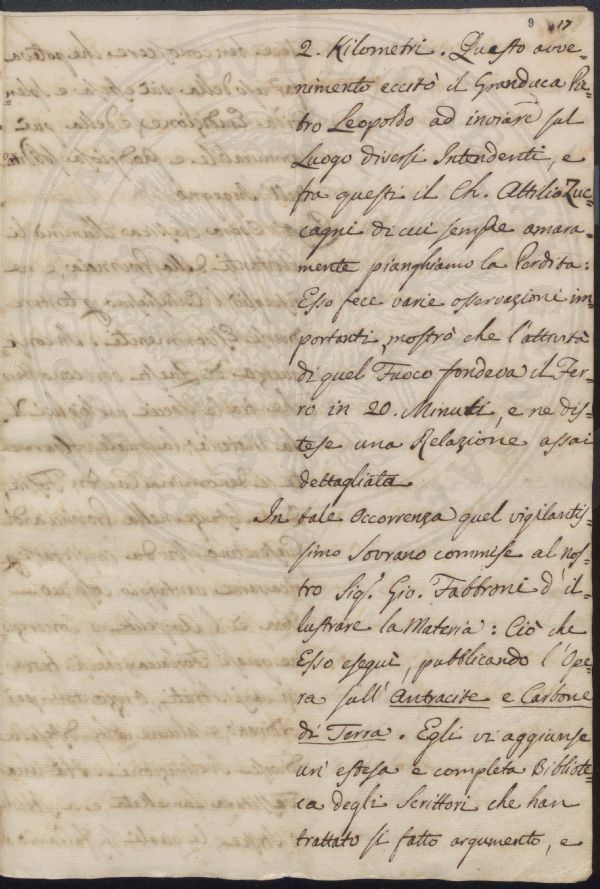 9 17
2. Kilometri. Questo avve=
nimento eccitò il Granduca Pie=
tro Leopoldo ad inviare sul
Luogo diversi Intendenti, e
fra questi il Ch. Attilio Zuc=
cagni di cui sempre amara=
mente pianghiamo la Perdita:
Esso fece varie osservazioni im=
portanti, mostrò che l'attività
di quel Fuoco fondeva il Fer=
ro in 20. Minuti, e ne dis=
tese una Relazione assai
dettagliata.
In tale Occorrenza quel vigilantis=
simo Sovrano commise al nos=
tro Sig.r Gio. Fabbroni d'il=
lustrare la Materia: Ciò che
Esso eseguì, pubblicando l'Ope=
ra sull'Antracite e Carbone
di Terra. Egli vi aggiunse
un'estesa e completa Bibliote=
ca degli Scrittori che han
trattato sì fatto argumento, e